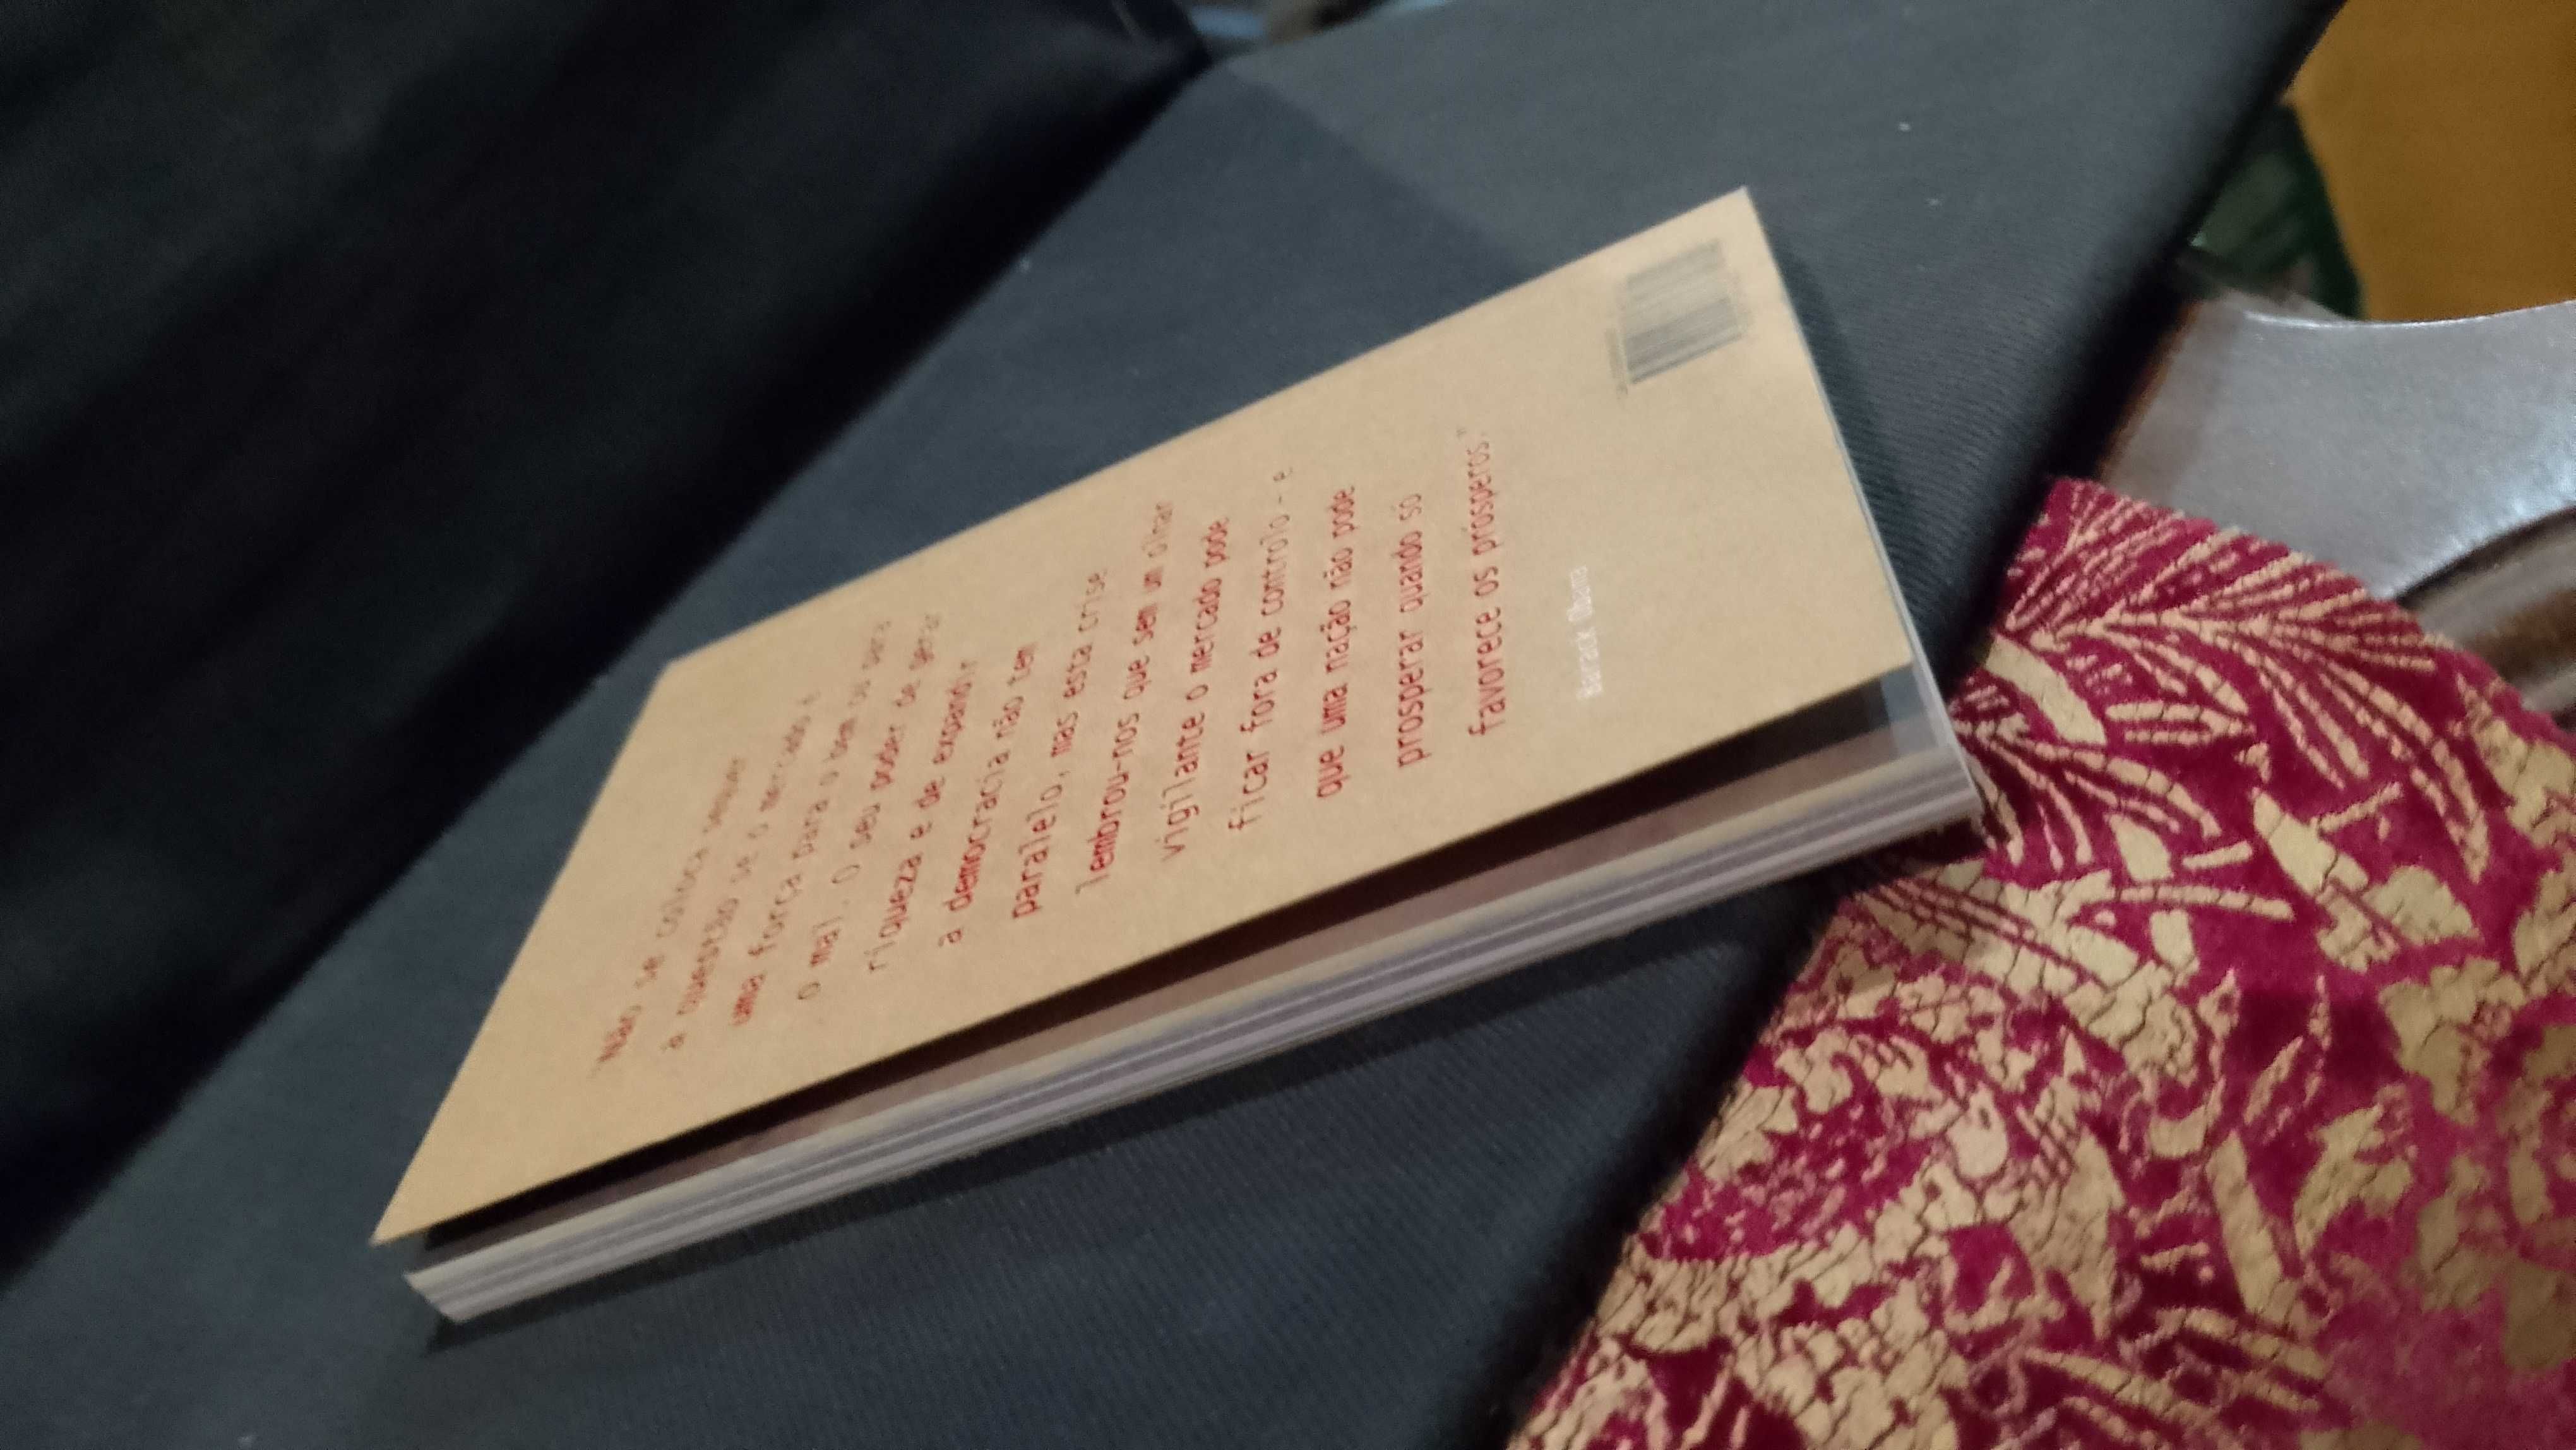 Não se coloca sequer
a questão se o mercado é
uma força para o bem ou para
o mal. O seu poder de gerar
riqueza e de expandir
a democracia não tem
paralelo, mas esta crise
lembrou-nos que sem um olhar
vigilante o mercado pode
ficar fora de controlo - e
que uma nação não pode
prosperar quando só
favorece os prósperos."
Barack Obama